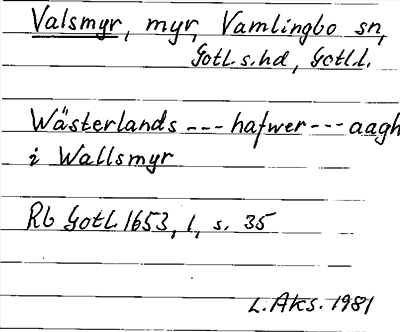 Valsmyr, myr, Vamlingbo sn,
Gotl. s. hd, Gotl.l.
Wästerlands --- hafwer --- aagh
i Wallsmyr
Rb Gotl. 1653, 1, s. 35
L. Aks. 1981